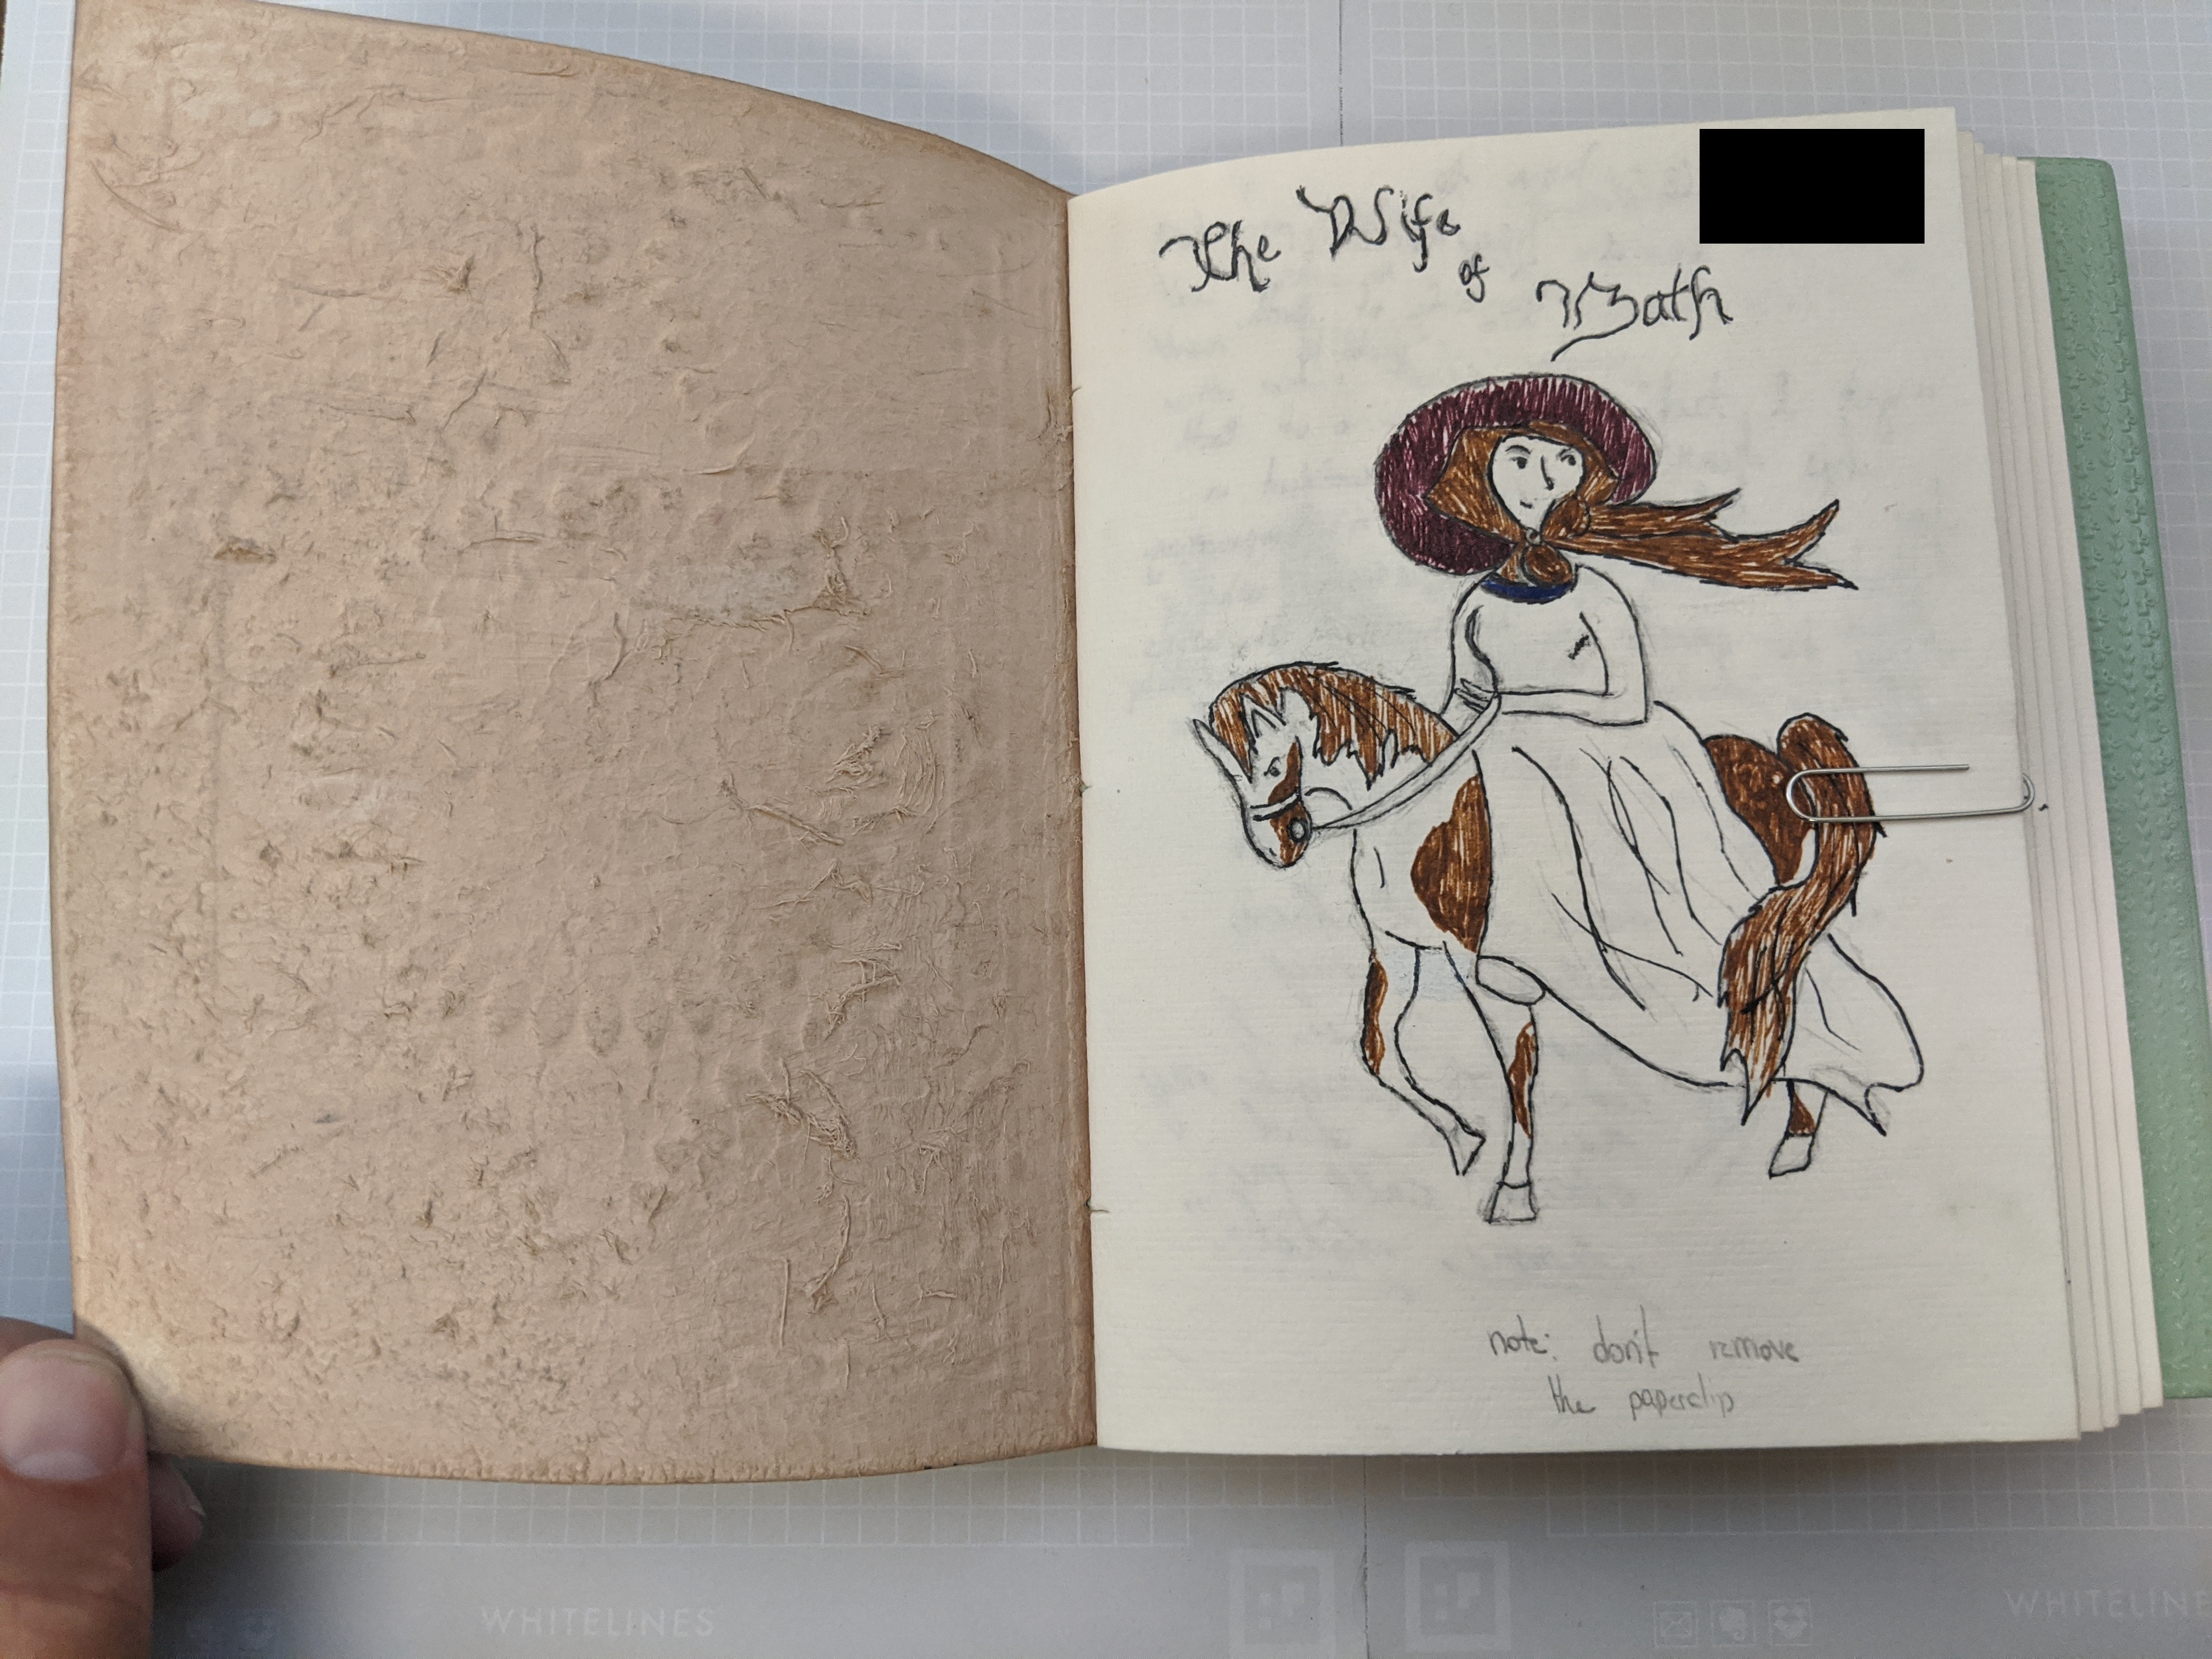 The Wife
of
Bath
note: don't remove
the paperclip
WHITELINES
WHITELIN